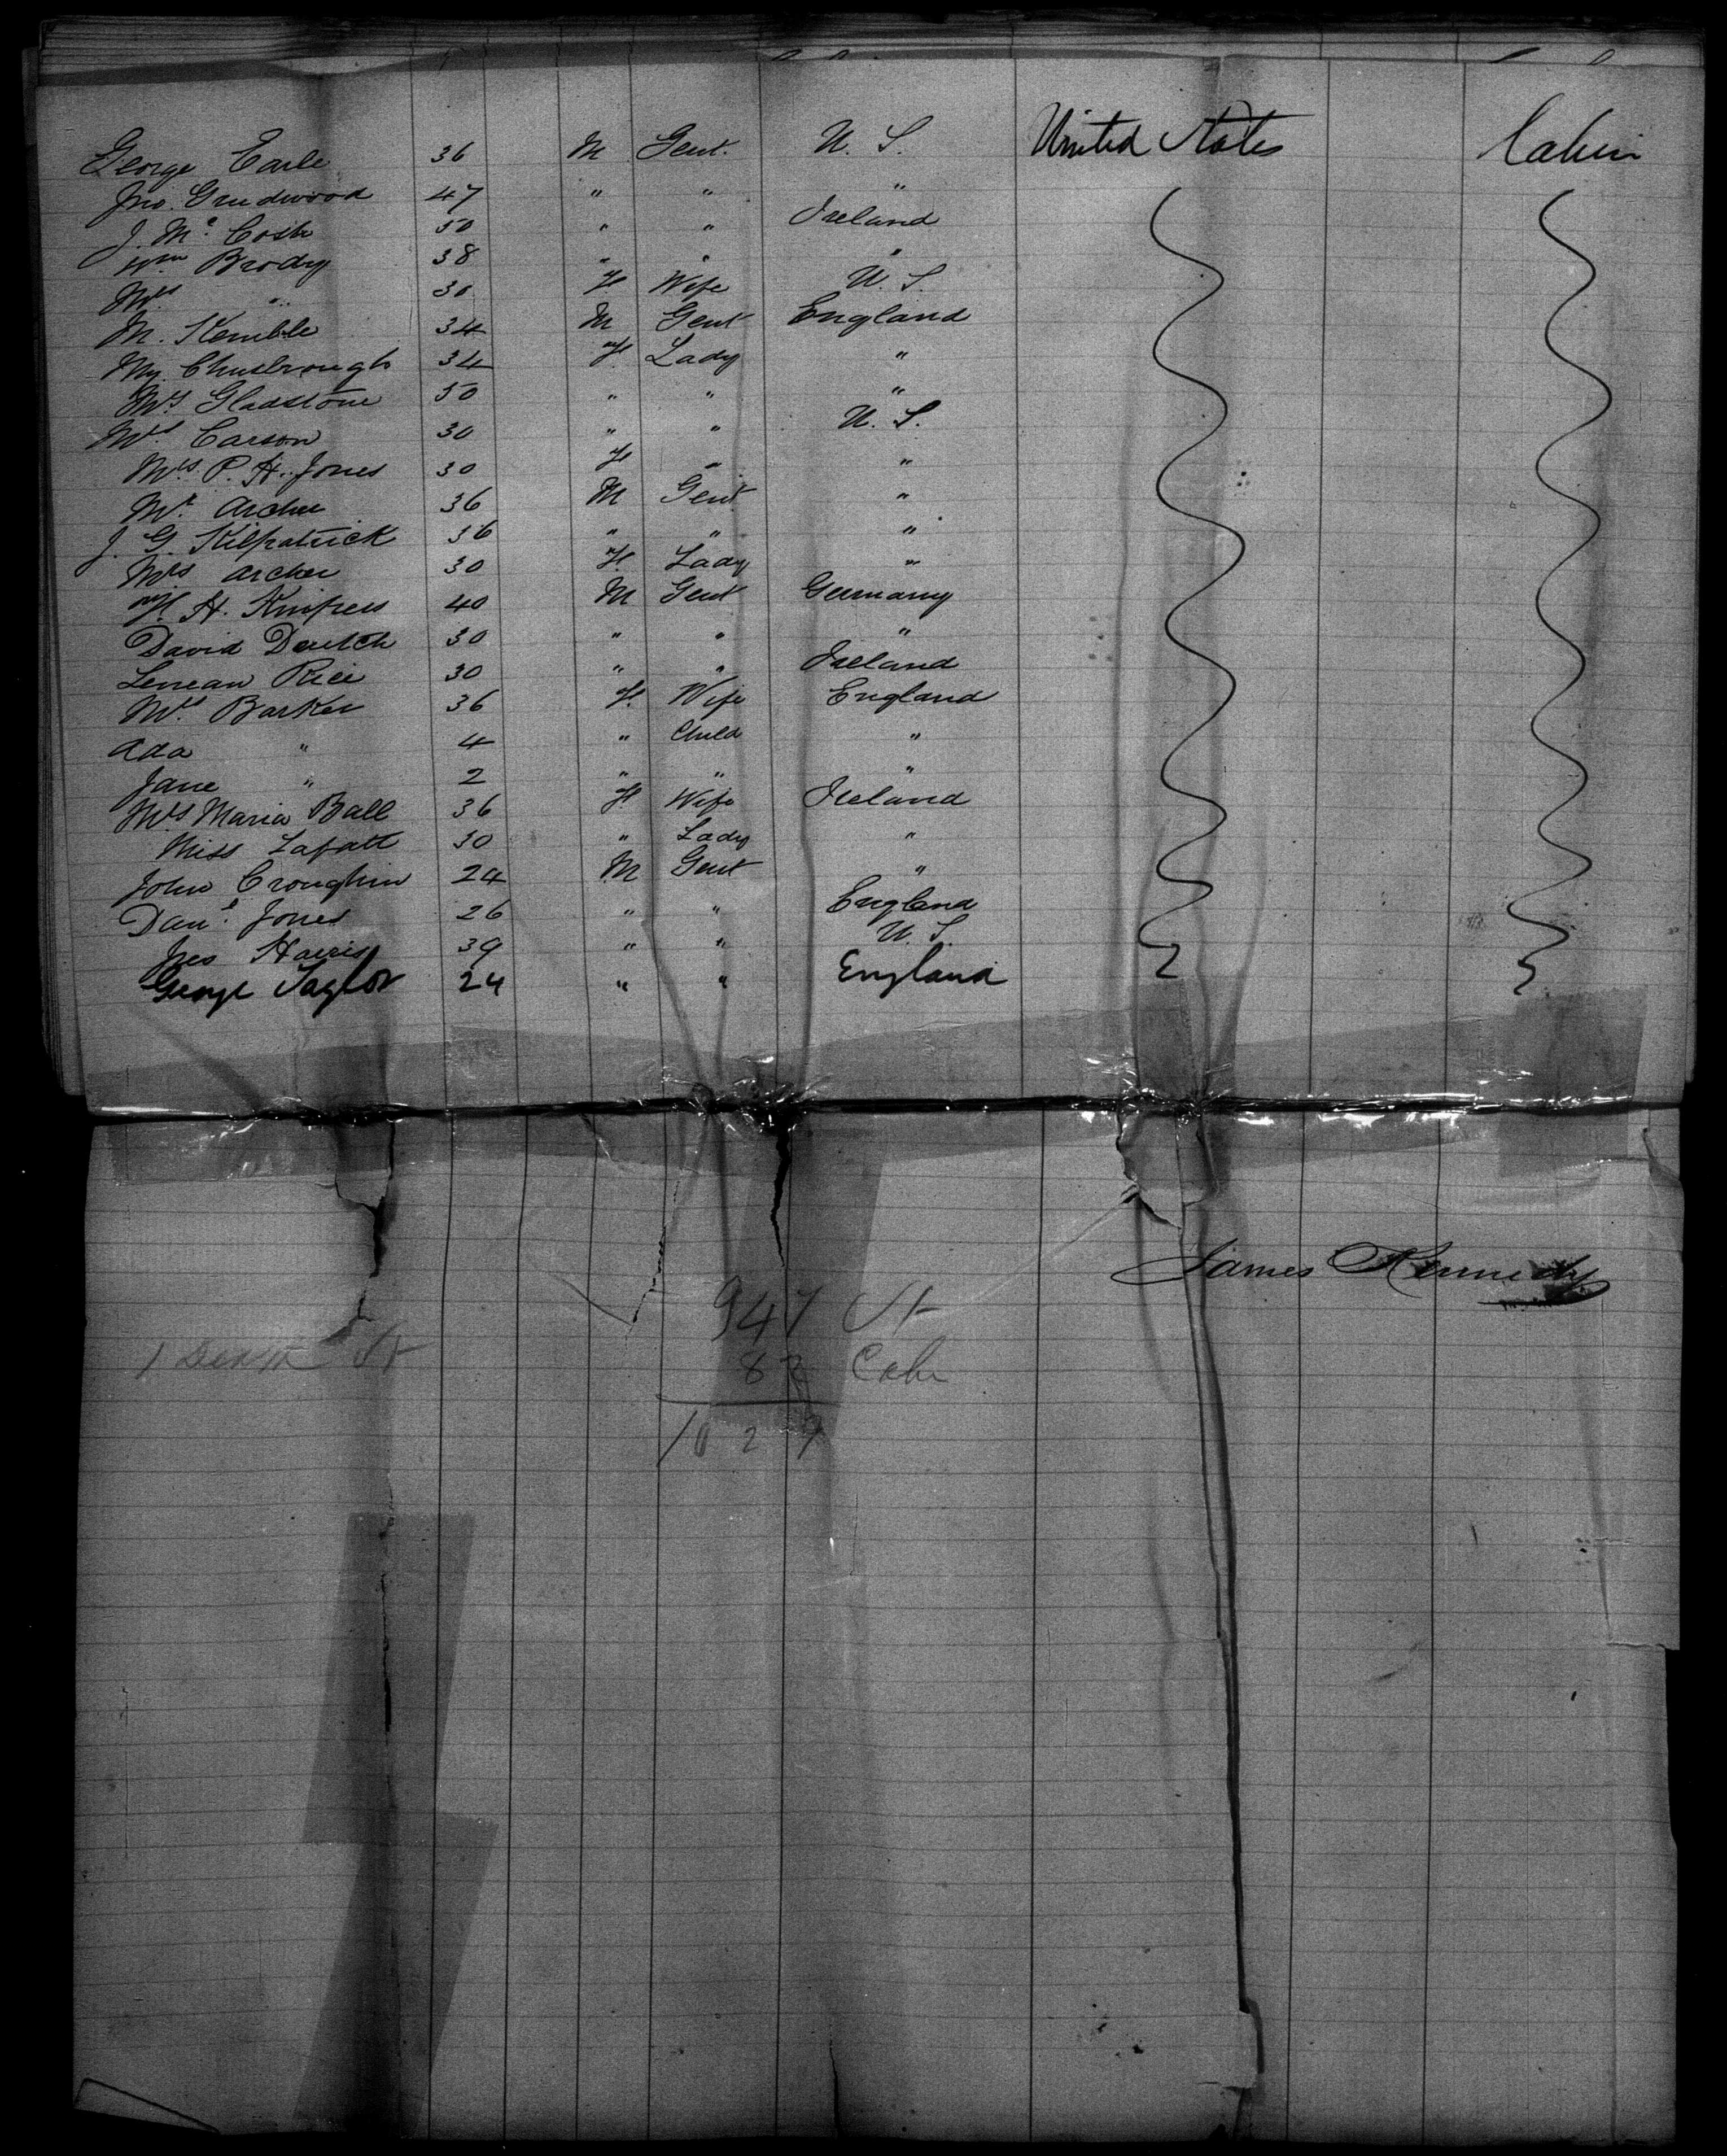 George Earle 36 M Gent. U. S. United States Cabin
Jno. Grudwood 47 " " "
J. Mc. Cosh 50 " " Ireland
Wm Brody 38 " " "
Mrs " 30 F Wife U. S.
M. Kemble 34 M Gent England
34 F. Lady "
Mrs Gladstone 50 " " "
Mrs Carson 30 " " U. S.
Mrs. P. H. Jones 30 F " "
Mr. Archer 36 M Gent. "
J. G. Kilpatrick 36 " " "
Mrs Archer 30 F. Lady "
F. H. 40 M Gent Germany
David Deutch 30 " " "
Rice 30 " " Ireland
Mrs. Barker 36 F. Wife England
Ada " 4 " Child "
Jane " 2 " " "
Mrs Maria Ball 36 F Wife Ireland
Miss 30 " Lady "
John Croughin 24 M Gent "
Danl. Jones 26 " " England
Harris 39 " " U. S.
George Taylor 24 " " England
James Kennedy
947 St
1 Death St 82 Cab
1029